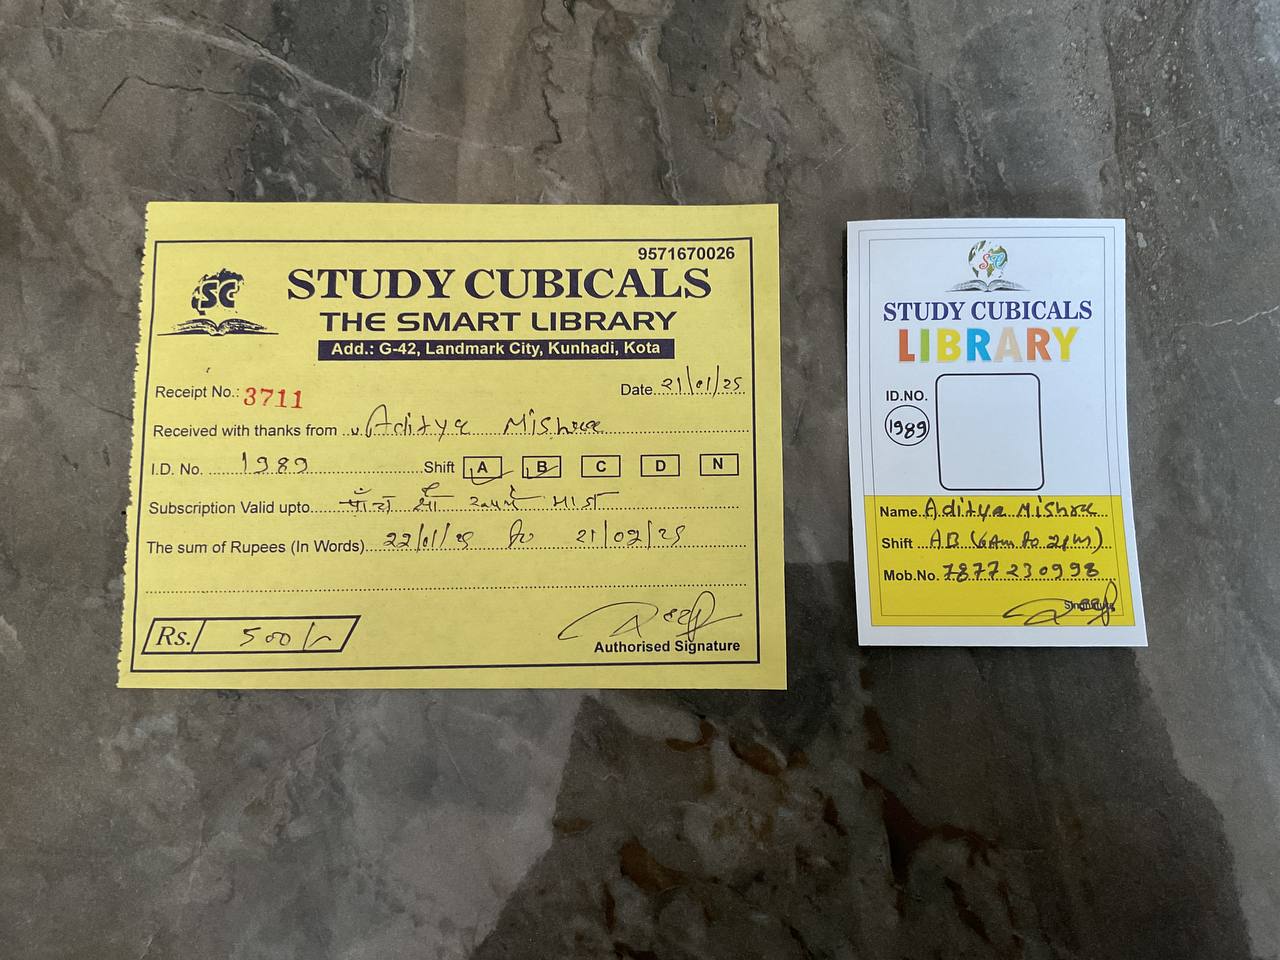 9571670026
SC
STUDY CUBICALS
THE SMART LIBRARY
Add.: G-42, Landmark City, Kunhadi, Kota
Receipt No.: 3711 Date 21/01/25
Received with thanks from Aditya Mishra
I.D. No. 1989 Shift A B C D N
Subscription Valid upto पाँच सौ रुपये मात्र
The sum of Rupees (In Words) 22/01/25 to 21/02/25
Rs. 500/-
Authorised Signature
SC
STUDY CUBICALS
LIBRARY
ID.NO.
1989
Name Aditya Mishra
Shift AB (6Am to 2pm)
Mob.No. 7877230998